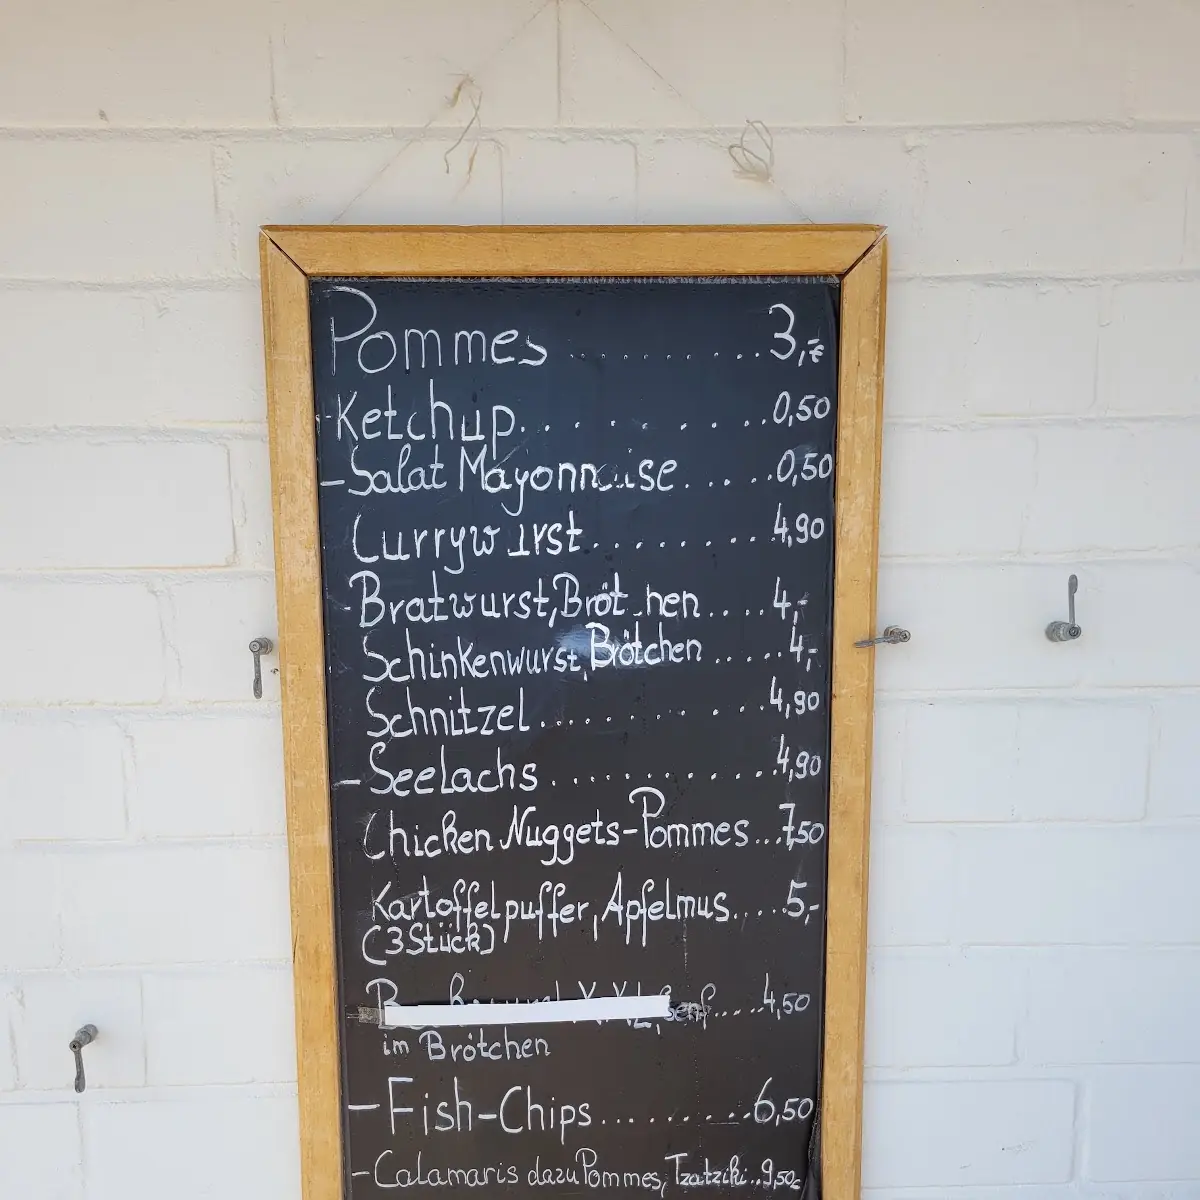 Pommes .......... 3,-€
-Ketchup. . . . . . . . . 0,50
-Salat Mayonnaise. . . . . 0,50
Currywurst. . . . . . . . . 4,90
Bratwurst, Brötchen. . . . 4,-
Schinkenwurst, Brötchen . . . . . 4,-
Schnitzel. . . . . . . . . . 4,90
-Seelachs . . . . . . . . . . . . 4,90
Chicken Nuggets-Pommes...7,50
Kartoffelpuffer, Apfelmus.....5,-
(3 Stück)
XXL, Senf.....4,50
im Brötchen
-Fish-Chips.........6,50
-Calamaris dazu Pommes, Tzatziki..9,50€